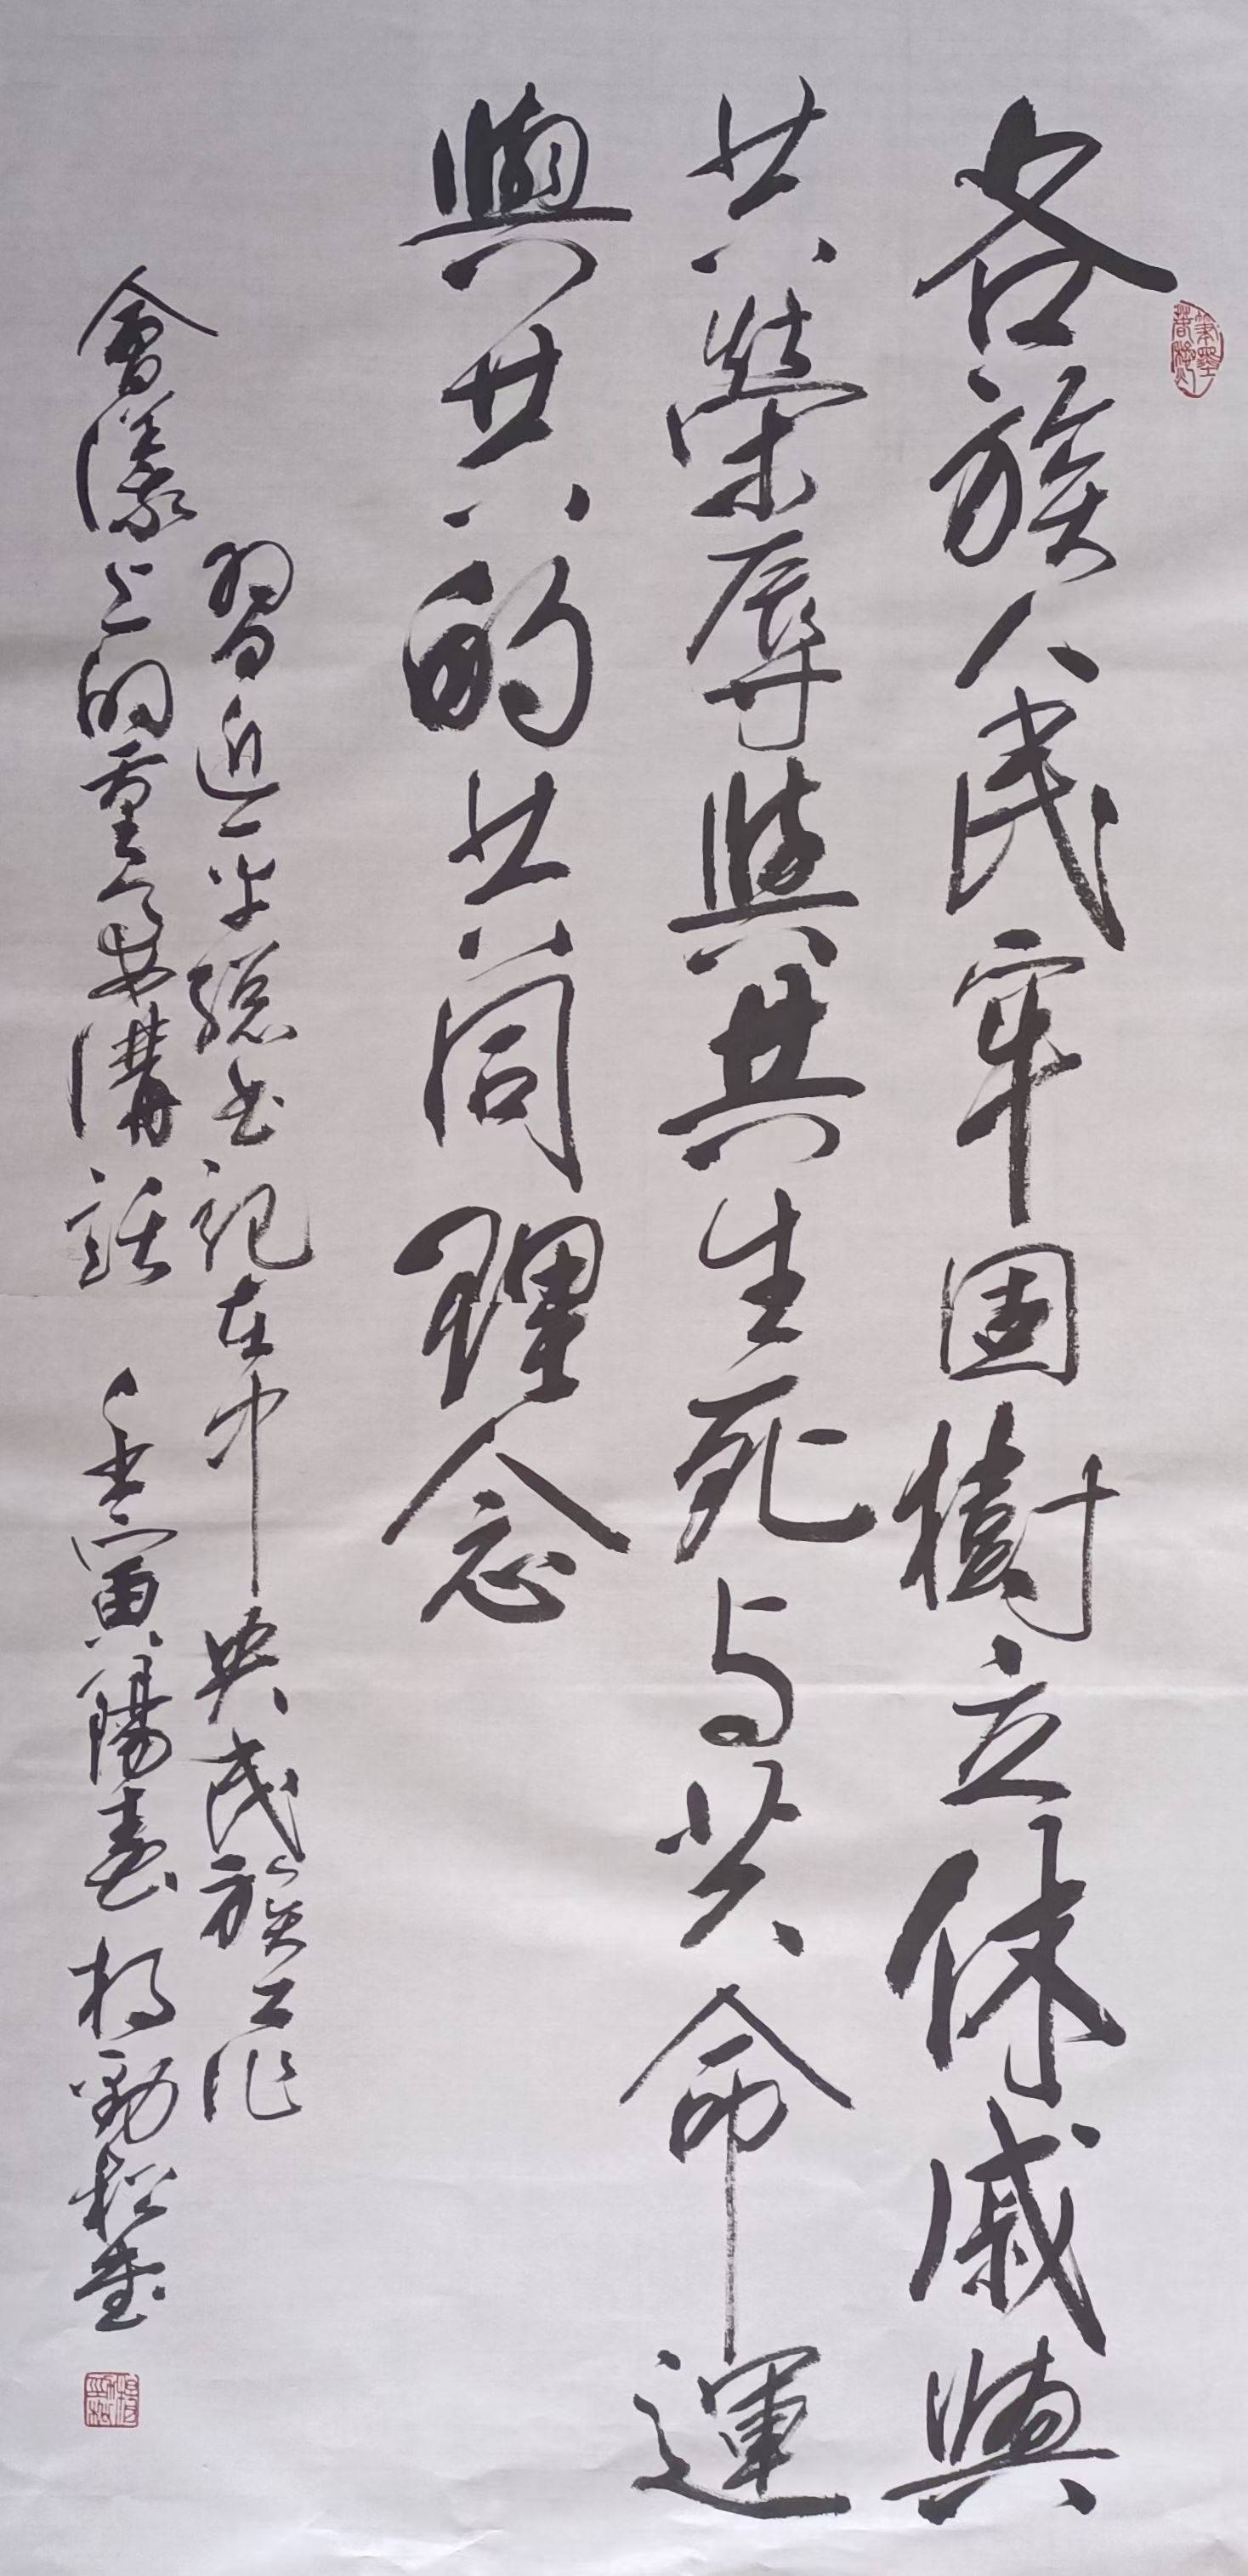 各族人民牢固樹立休戚與
共榮辱與共生死与共命運
與共的共同理念
習近平總书記在中央民族工作
會議上的重要講話 壬寅陽春 楊勁松書